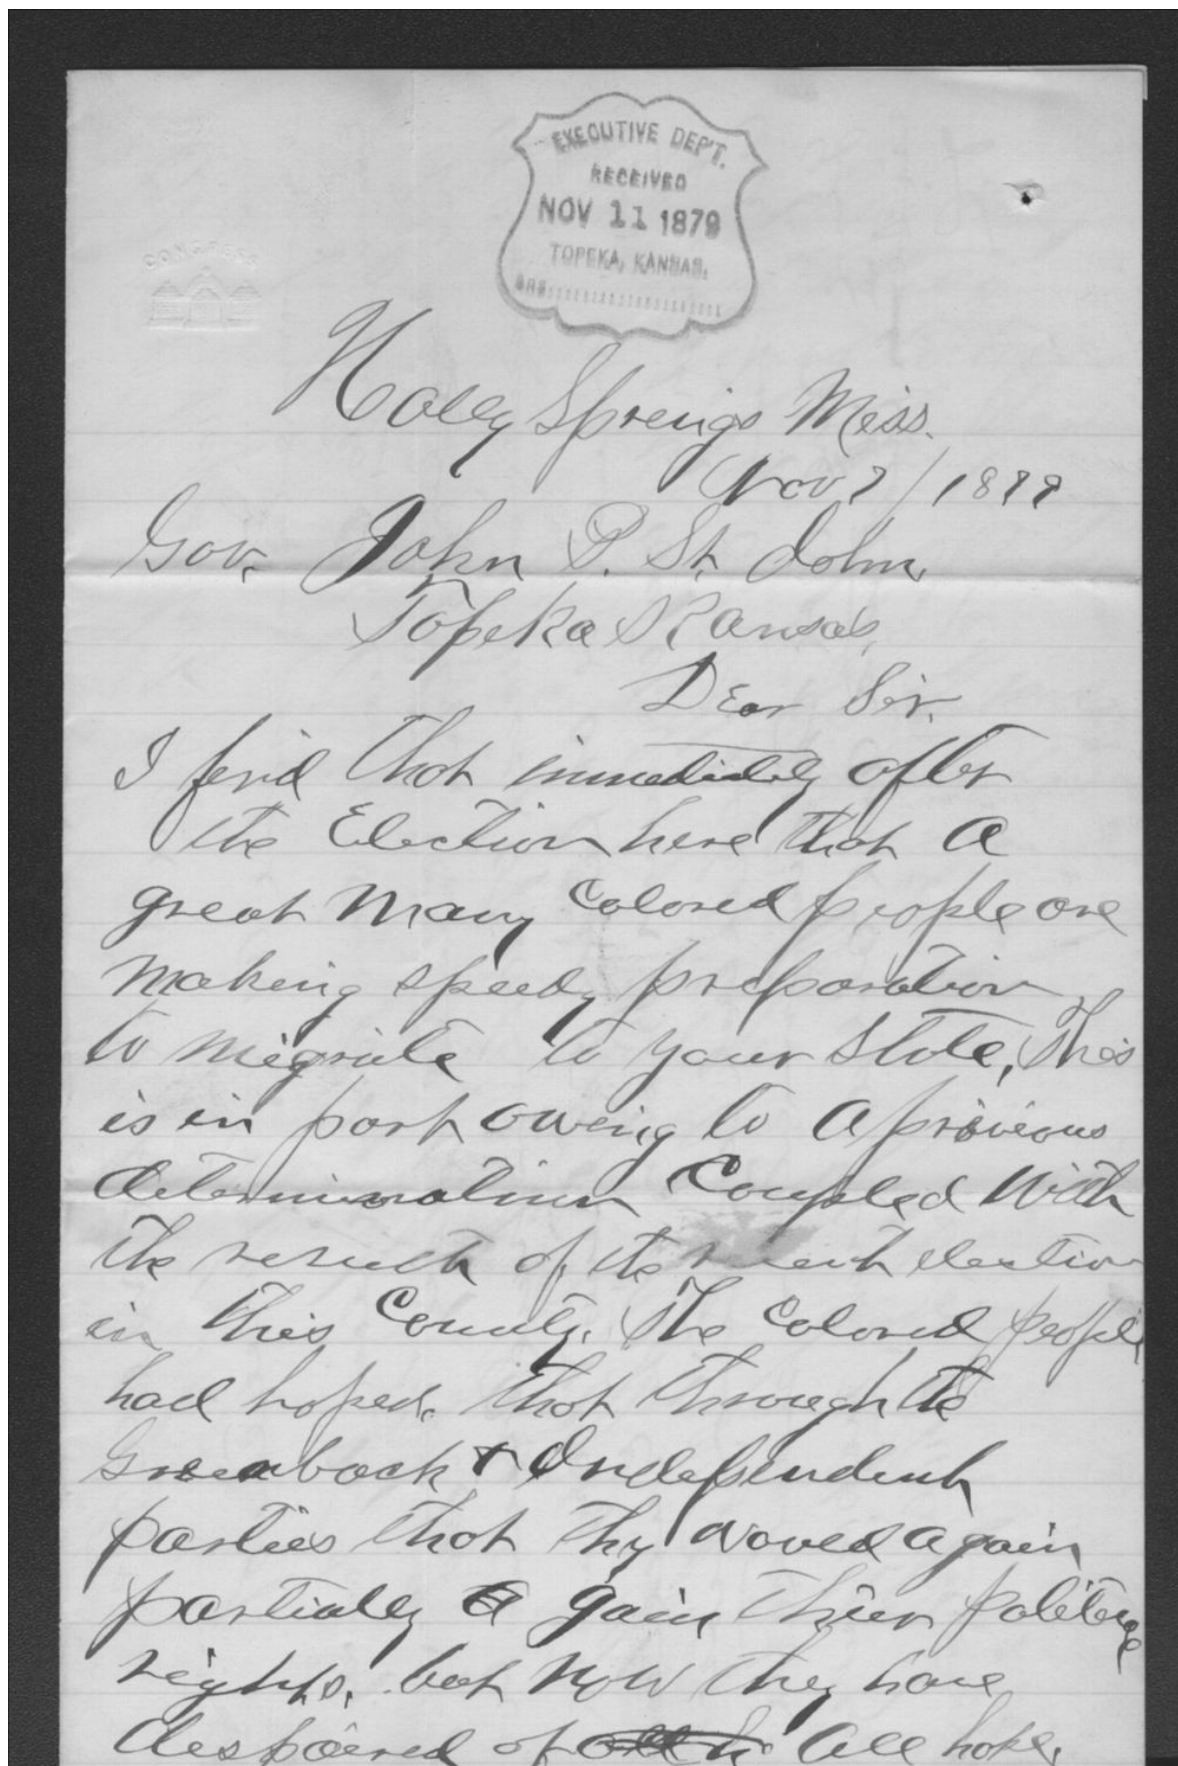 EXECUTIVE DEP'T.
RECEIVED
NOV 11 1879
TOPEKA, KANSAS.
CONGRESS
Holly Springs Miss.
Nov 7/1879
Gov. John P. St. John,
Topeka Kansas,
Dear Sir.
I find that immediately after
the Election here that a
great many Colored people are
making speedy preparation
to migrate to your State, This
is in part owing to a previous
determination Coupled with
the result of the recent election
in this County. The Colored people
had hoped that through the
Greenback & Independent
parties that thy would again
partially a gain their politic
rights, but now they have
despaired of all hope,